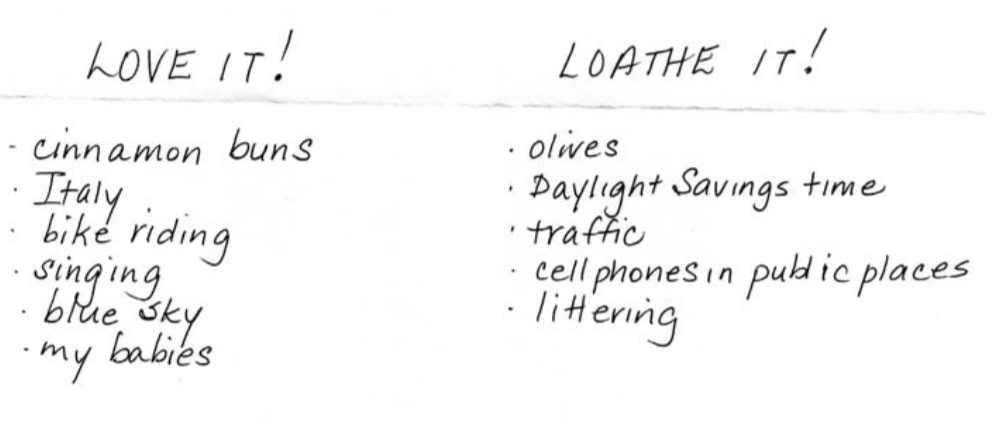 LOVE IT!
- cinnamon buns
· Italy
· bike riding
· singing
· blue sky
· my babies
LOATHE IT!
· olives
· Daylight Savings time
· traffic
· cell phones in public places
· littering